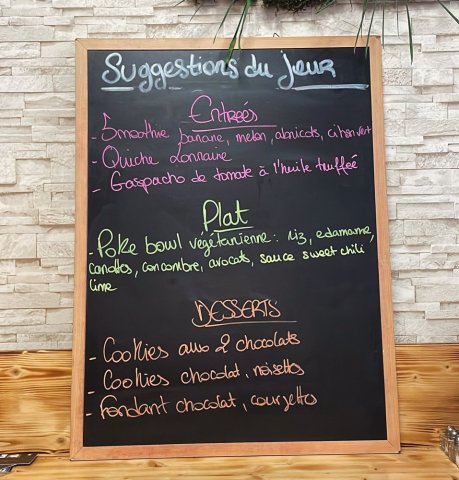 Suggestions du jeur
Entreés
- Smoothie banane, melon, abricots, citron vert
- Quiche Lorraine
- Gaspacho de tomate à l'huile trufféé
Plat
- Poke bowl végétarienne : riz, edamame,
carottes, concombre, avocats, sauce sweet chili
lime
DESSERTS
- Cookies aux 2 chocolats
- Cookies chocolat, noisettes
- Fondant chocolat, courgettes